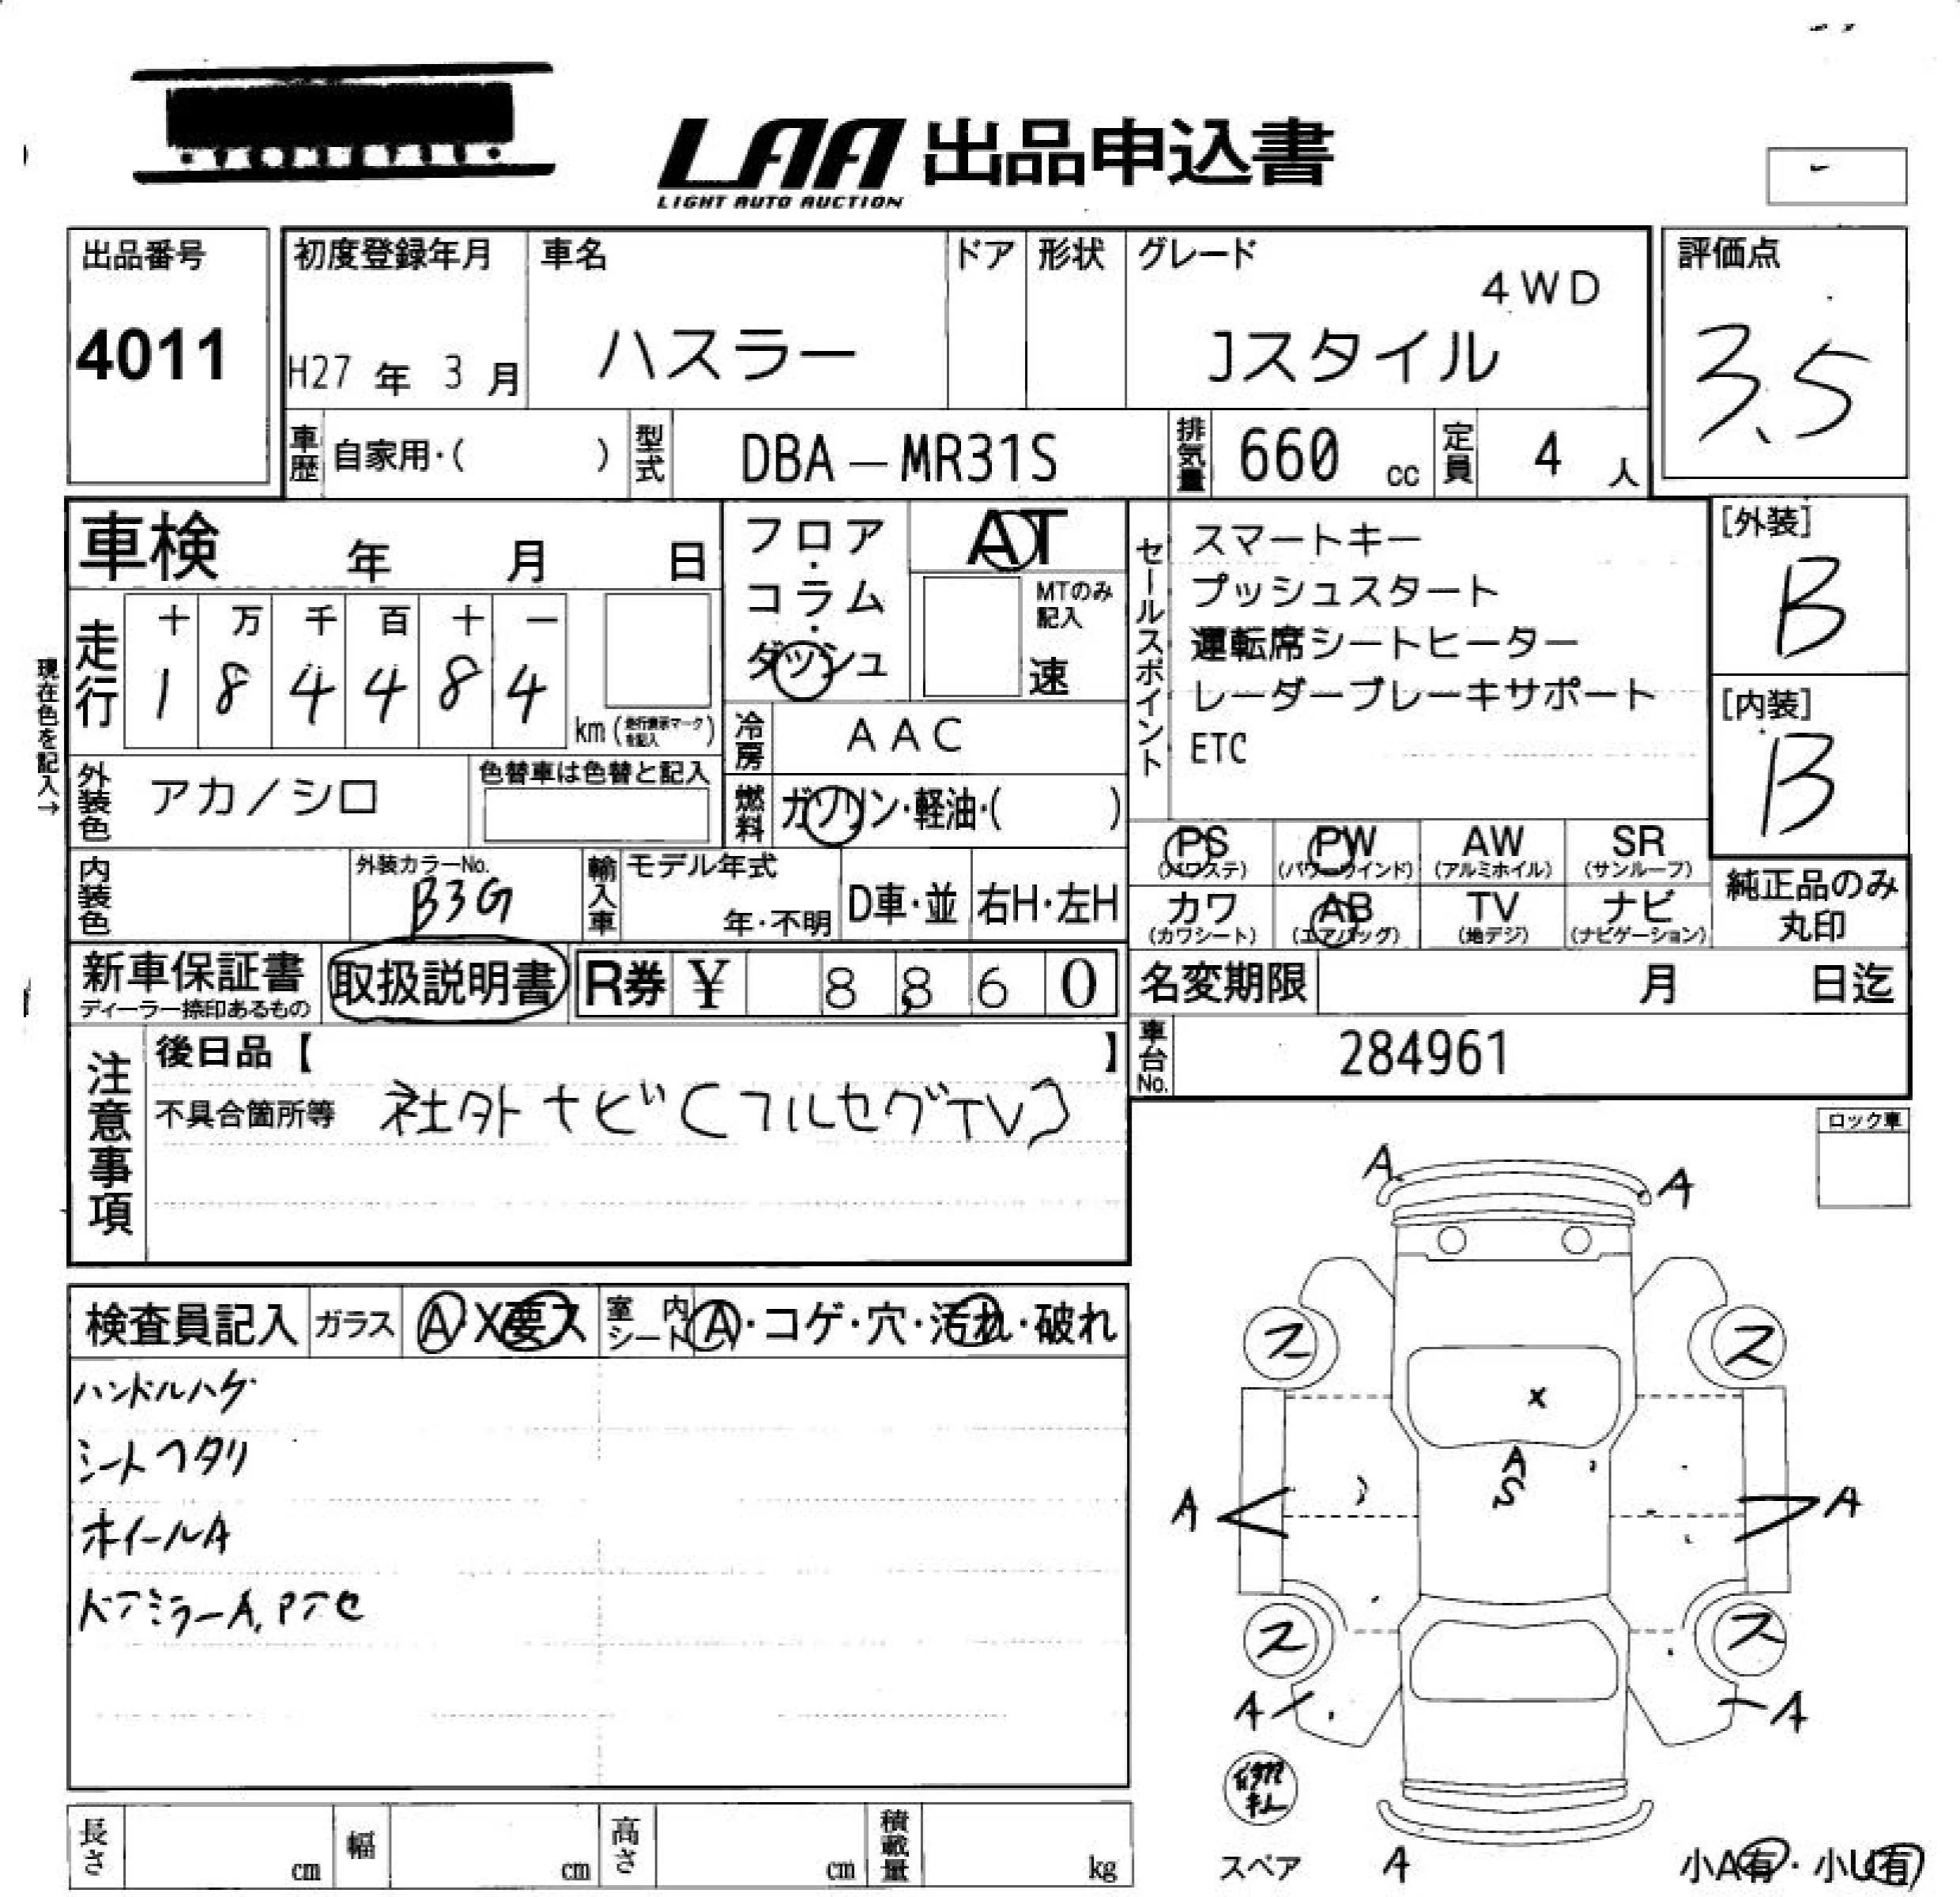 LAA 出品申込書
LIGHT AUTO AUCTION
出品番号
4011
初度登録年月
H27 年 3 月
車名
ハスラー
ドア
形状
グレード
4WD
Jスタイル
評価点
3.5
車歴 自家用・( )
型式 DBA-MR31S
排気量 660 cc
定員 4 人
車検 年 月 日
フロア・コラム・ダッシュ
AT
MTのみ記入
速
セールスポイント
スマートキー
プッシュスタート
運転席シートヒーター
レーダーブレーキサポート
ETC
[外装]
B
[内装]
B
現在色を記入→
走行
十 万 千 百 十 一
1 8 4 4 8 4
km (走行表示マークを記入)
冷房 AAC
外装色 アカ/シロ
色替車は色替と記入
燃料 ガソリン・軽油・( )
PS (パワステ)
PW (パワーウインド)
AW (アルミホイル)
SR (サンルーフ)
カワ (カワシート)
AB (エアバッグ)
TV (地デジ)
ナビ (ナビゲーション)
純正品のみ
丸印
内装色
外装カラーNo.
B3G
輸入車
モデル年式
年・不明
D車・並
右H・左H
新車保証書
ディーラー捺印あるもの
取扱説明書
R券 ¥ 8,860
名変期限 月 日迄
車台No. 284961
注意事項
後日品【 】
不具合箇所等 社外ナビ(フルセグTV)
ロック車
検査員記入
ガラス A・X要ス
室内シート A・コゲ・穴・汚れ・破れ
ハンドルハゲ
シートヘタリ
ホイールA
ドアミラーA,Pアセ
A
A
ス
ス
X
A
S
A
A
ス
ス
A
A
スペア
A
小A有・小U有
長さ cm
幅 cm
高さ cm
積載量 kg